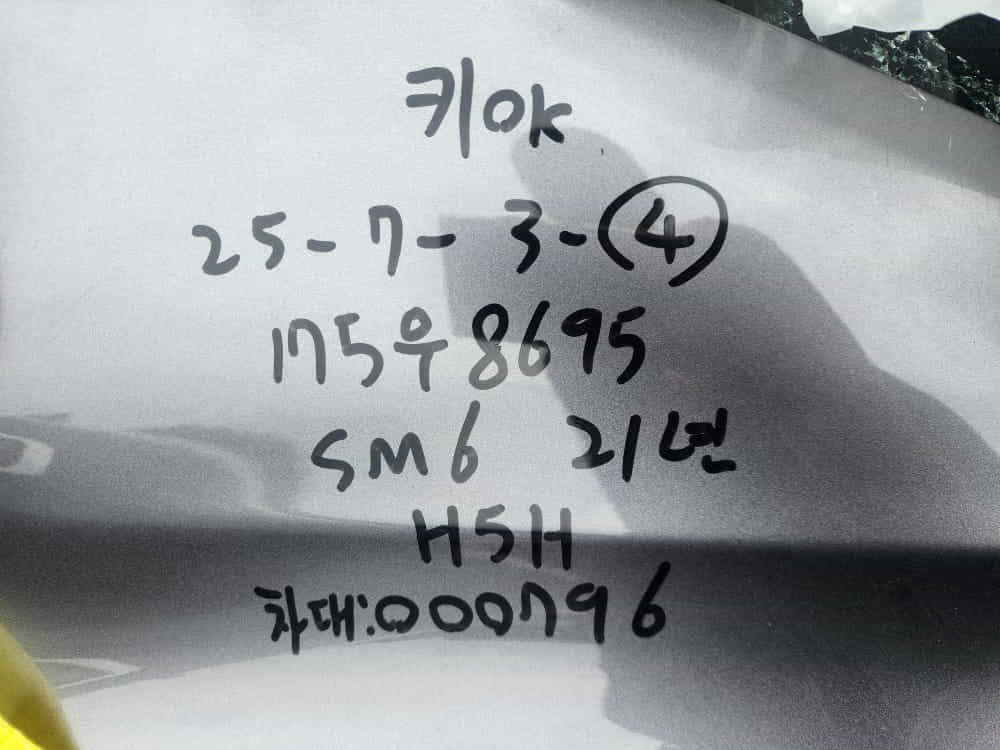 키OK
25-7-3-④
175우8695
SM6 21년
H5H
차대:000796